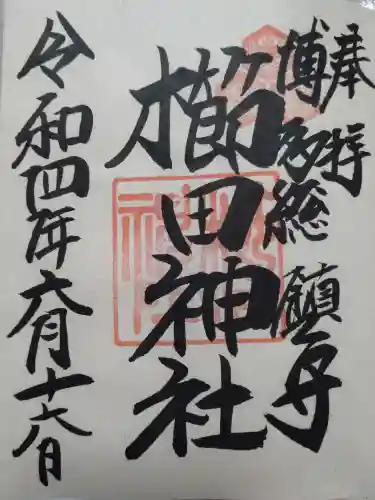 奉拝
博多総鎮守
櫛田神社
令和四年六月十六日